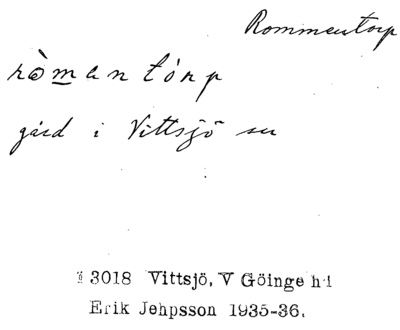 Rommentorp
ròman tórp
gård i Vittsjö sn
3018 Vittsjö, V Göinge hd
Erik Jehpsson 1935-36.